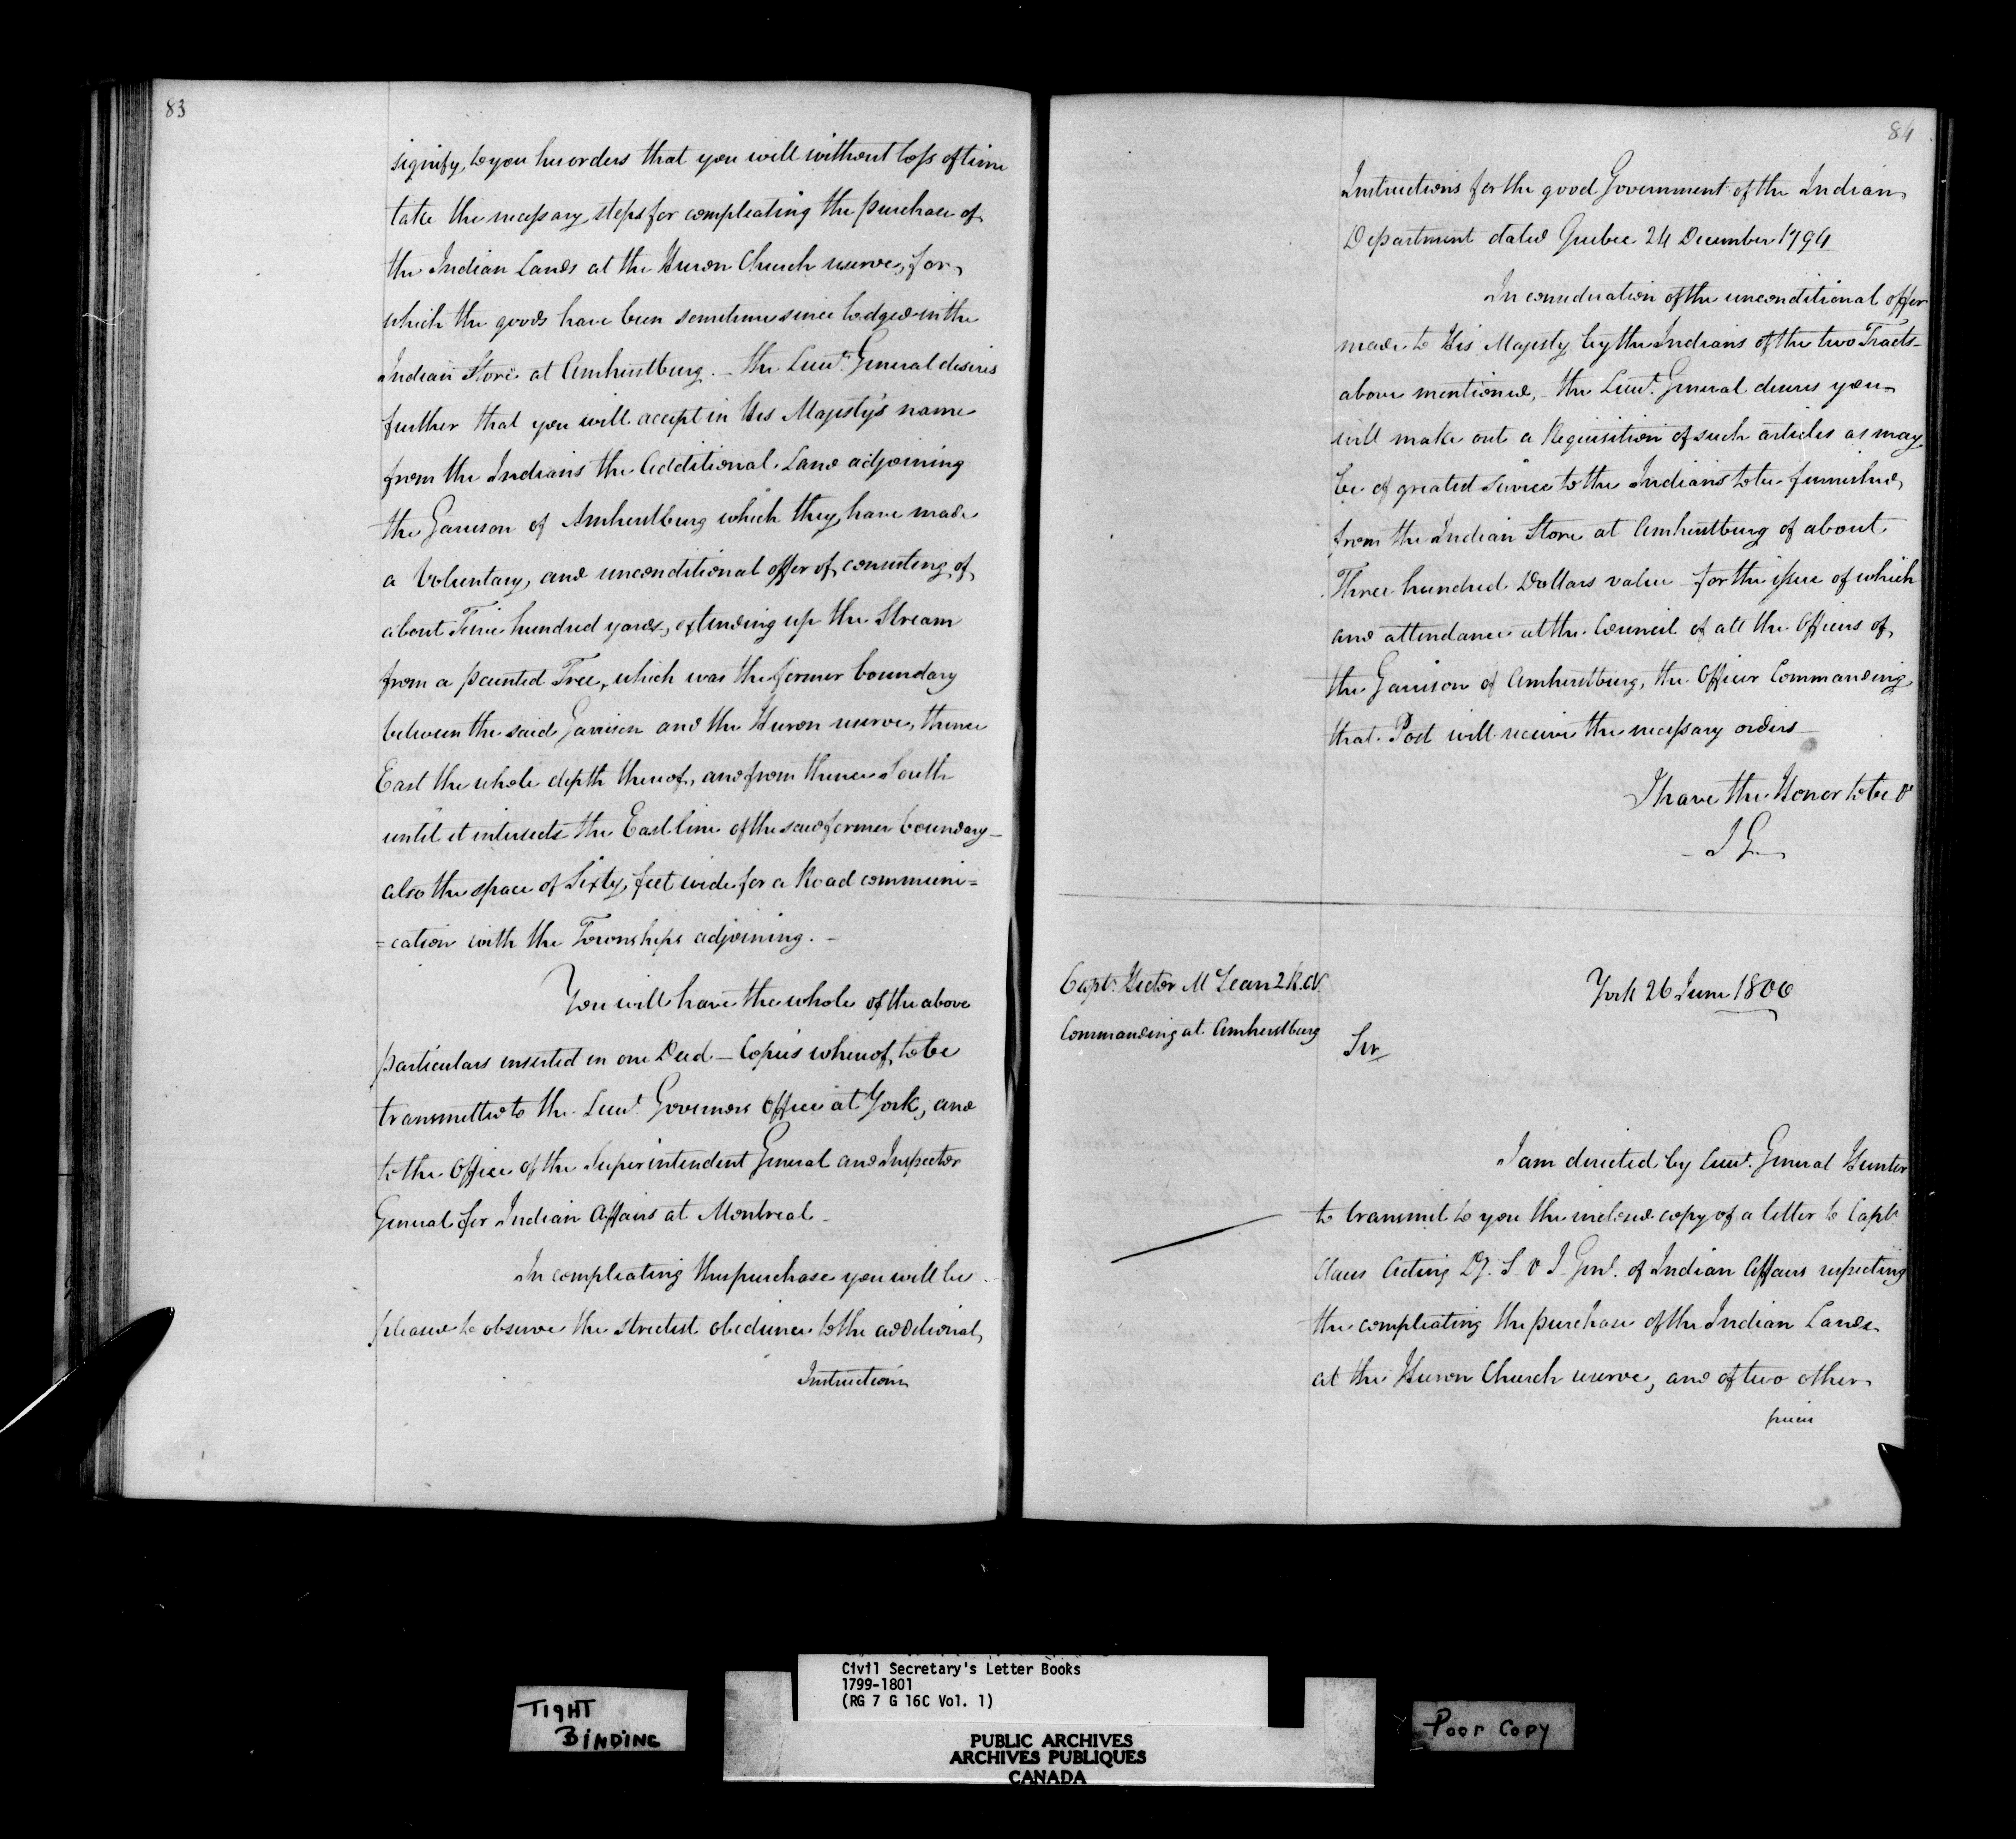 83
signify to you his orders that you will without loss of time
take the necessary steps for compleating the purchase of
the Indian Lands at the Huron Church reserve, for
which the goods have been sometime since lodged in the
Indian Store at Amherstburg. – the Lieut. General desires
further that you will accept in His Majesty's name
from the Indians the Additional Land adjoining
the Garrison of Amherstburg which they have made
a Voluntary, and unconditional offer of, consisting of
about hundred yards, extending up the Stream
from a painted Tree, which was the former boundary
between the said Garrison and the Huron reserve, thence
East the whole depth thereof, and from thence South
until it intersects the East line of the said former boundary –
also the space of Sixty feet wide for a Road communi=
=cation with the Townships adjoining. –
You will have the whole of the above
particulars inserted in one Deed – Copies whereof, to be
transmitted to the Lieut. Governors Office at York, and
to the Office of the Superintendent General and Inspector
General for Indian Affairs at Montreal –
In compleating this purchase you will be
pleased to observe the strictest obedience to the additional
Instructions
84
Instructions for the good Government of the Indian
Department dated Quebec 24 December 1794
In consideration of the unconditional offer
made to His Majesty by the Indians of the two Tracts
above mentioned, – the Lieut. General desires you
will make out a Requisition of such articles as may
be of greatest Service to the Indians to be furnished
from the Indian Store at Amherstburg of about
Three hundred Dollars value – for the issue of which
and attendance at the Council of all the Officers of
the Garrison of Amherstburg, the Officer Commanding
that Post will receive the necessary orders –
I have the Honor to be &
J G
Capt. Hector McLean 2 R.C.V.
Commanding at Amherstburg
York 26 June 1800
Sir
I am directed by Lieut. General Hunter
to transmit to you the inclosed copy of a letter to Capt.
Claus Acting Dy. S & I Genl. of Indian Affairs respecting
the compleating the purchase of the Indian Lands
at the Huron Church reserve, and of two other
pieces
TIGHT
BINDING
Civil Secretary's Letter Books
1799-1801
(RG 7 G 16C Vol. 1)
PUBLIC ARCHIVES
ARCHIVES PUBLIQUES
CANADA
Poor Copy